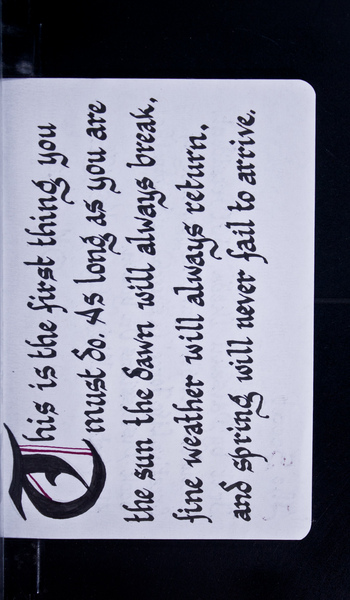 This is the first thing you
must do. As long as you are
the sun the dawn will always break,
fine weather will always return,
and spring will never fail to arrive.